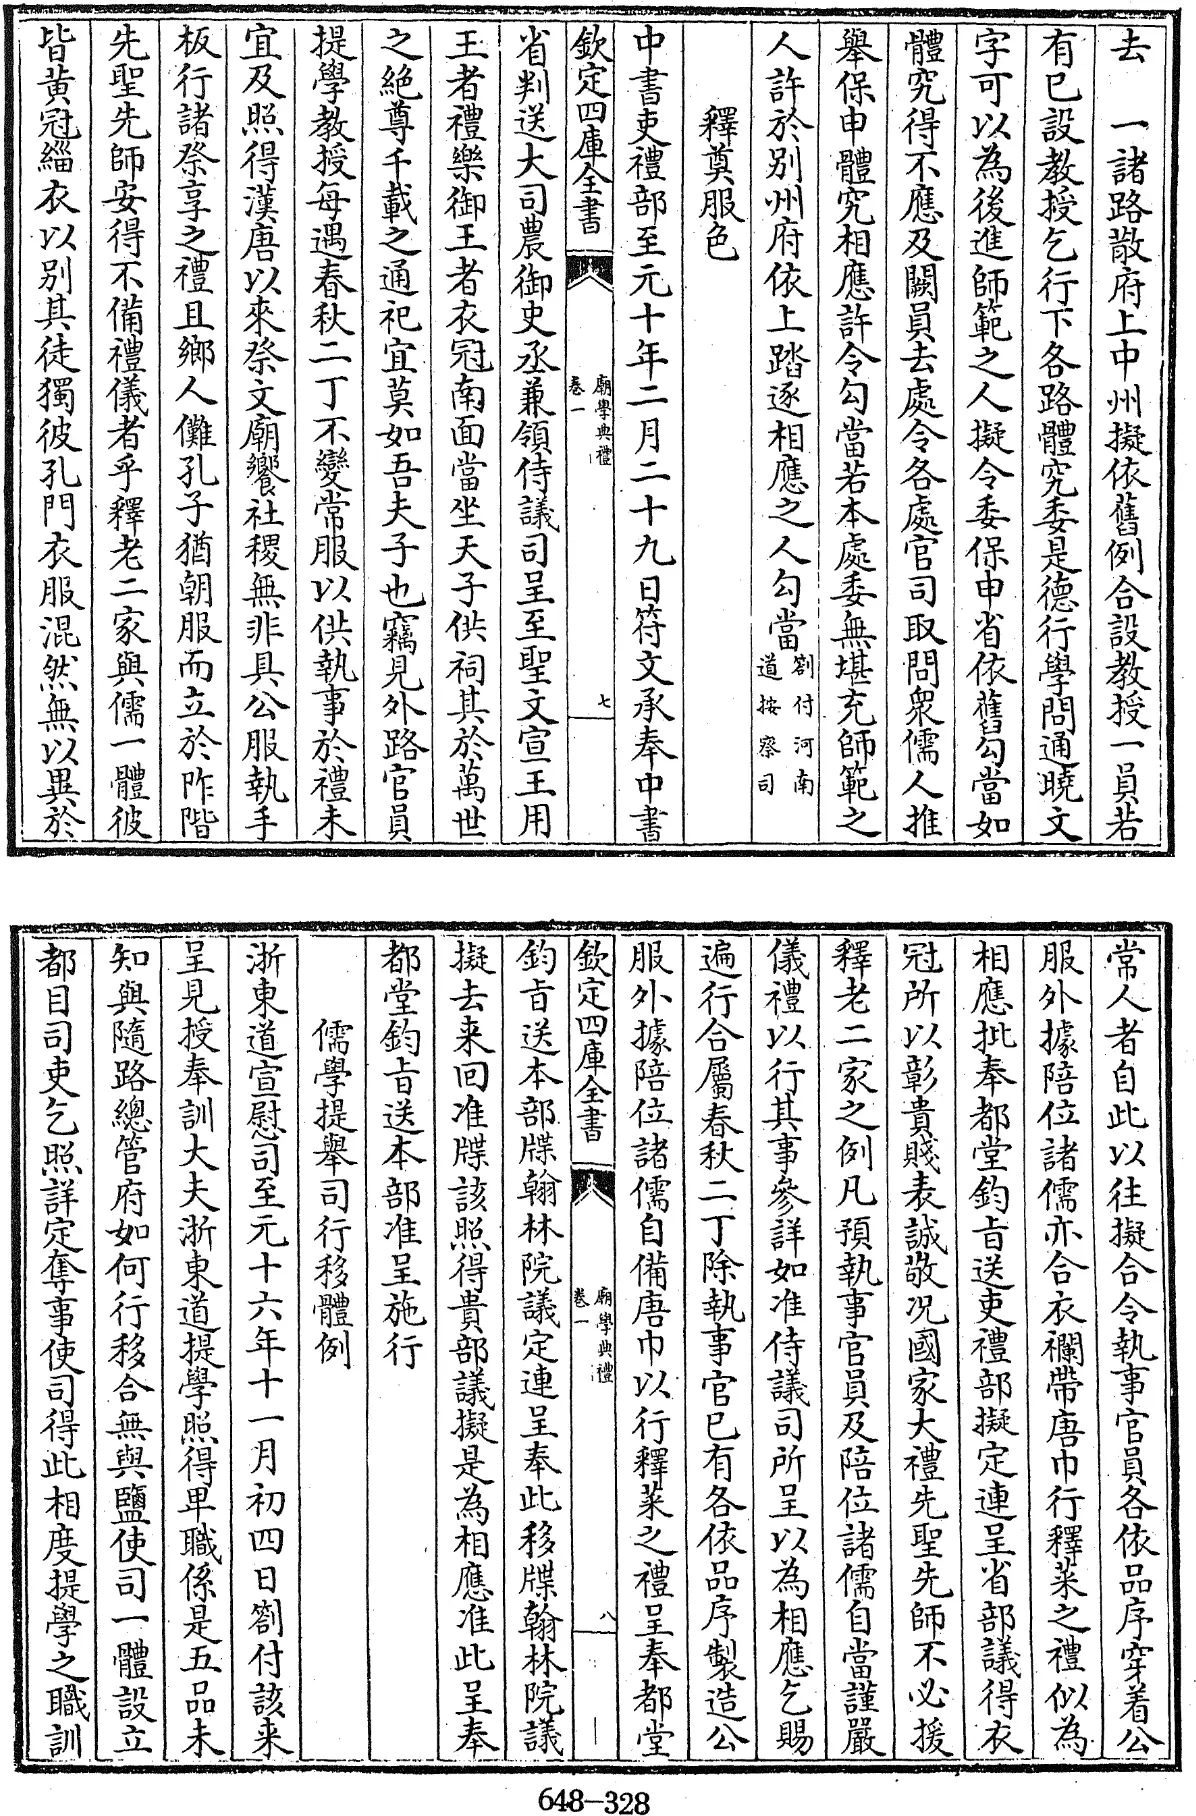 去　一諸路散府上中州擬依舊例合設教授一員若
有已設教授乞行下各路體究委是德行學問通曉文
字可以為後進師範之人擬令委保申省依舊勾當如
體究得不應及闕員去處令各處官司取問衆儒人推
舉保申體究相應許令勾當若本處委無堪充師範之
人許於別州府依上踏逐相應之人勾當劄付河南道按察司
釋奠服色
中書吏禮部至元十年二月二十九日符文承奉中書
欽定四庫全書　廟學典禮　卷一　七
省判送大司農御史丞兼領侍議司呈至聖文宣王用
王者禮樂御王者衣冠南面當坐天子供祠其於萬世
之絶尊千載之通祀宜莫如吾夫子也竊見外路官員
提學教授每遇春秋二丁不變常服以供執事於禮未
宜及照得漢唐以來祭文廟饗社稷無非具公服執手
板行諸祭享之禮且鄉人儺孔子猶朝服而立於阼階
先聖先師安得不備禮儀者乎釋老二家與儒一體彼
皆黄冠緇衣以别其徒獨彼孔門衣服混然無以異於
常人者自此以往擬合令執事官員各依品序穿着公
服外據陪位諸儒亦合衣襴帶唐巾行釋菜之禮似為
相應批奉都堂鈞旨送吏禮部擬定連呈省部議得衣
冠所以彰貴賤表誠敬况國家大禮先聖先師不必援
釋老二家之例凡預執事官員及陪位諸儒自當謹嚴
儀禮以行其事參詳如准侍議司所呈以為相應乞賜
遍行合屬春秋二丁除執事官已有各依品序製造公
服外據陪位諸儒自備唐巾以行釋菜之禮呈奉都堂
欽定四庫全書　廟學典禮　卷一　八
鈞旨送本部牒翰林院議定連呈奉此移牒翰林院議
擬去来回准牒該照得貴部議擬是為相應准此呈奉
都堂鈞旨送本部准呈施行
儒學提舉司行移體例
浙東道宣慰司至元十六年十一月初四日劄付該来
呈見授奉訓大夫浙東道提學照得卑職係是五品未
知與隨路總管府如何行移合無與鹽使司一體設立
都目司吏乞照詳定奪事使司得此相度提學之職訓
648-328